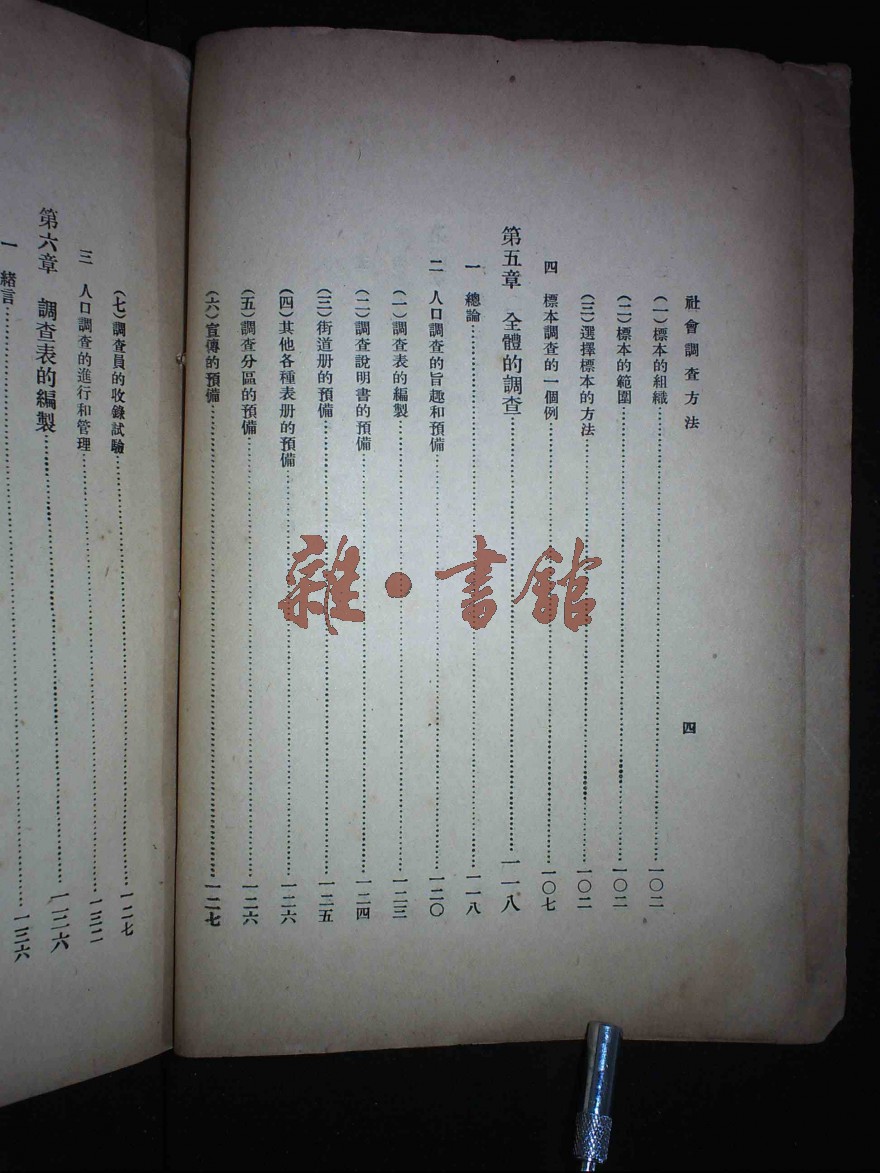 社會調查方法
四
(一)標本的組織……一〇二
(二)標本的範圍……一〇二
(三)選擇標本的方法……一〇二
四 標本調查的一個例……一〇七
第五章 全體的調查……一一八
一 總論……一一八
二 人口調查的旨趣和預備……一二〇
(一)調查表的編製……一二三
(二)調查說明書的預備……一二四
(三)街道册的預備……一二五
(四)其他各種表册的預備……一二六
(五)調查分區的預備……一二六
(六)宣傳的預備……一二七
(七)調查員的收錄試驗……一二七
三 人口調查的進行和管理……一三二
第六章 調查表的編製……一三六
一 緒言……一三六
雜·書館